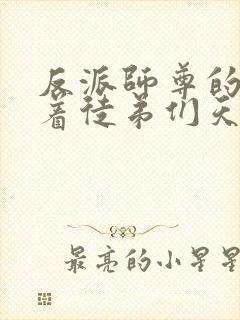 反派师尊的
着徒弟们天
最亮的小星星